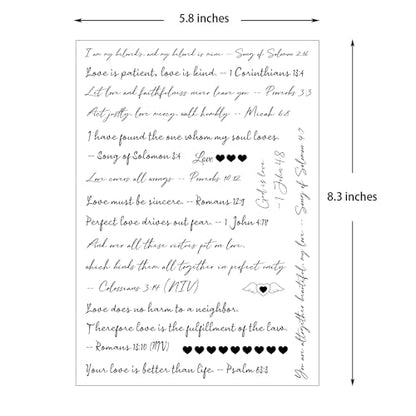 5.8 inches
I am my beloved's, and my beloved is mine. -- Song of Solomon 2:16
Love is patient, love is kind. -- 1 Corinthians 13:4
Let love and faithfulness never leave you -- Proverbs 3:3
Act justly, love mercy, walk humbly. -- Micah 6:8
I have found the one whom my soul loves.
-- Song of Solomon 3:4
Love
Love covers all wrongs. -- Proverbs 10:12
Love must be sincere. -- Romans 12:9
Perfect love drives out fear. -- 1 John 4:18
And over all these virtues put on love,
which binds them all together in perfect unity.
-- Colossians 3:14 (NIV)
Love does no harm to a neighbor.
Therefore love is the fulfillment of the law.
-- Romans 13:10 (NIV)
Your love is better than life. -- Psalm 63:3
God is love.
-- 1 John 4:8
You are altogether beautiful, my love -- Song of Solomon 4:7
8.3 inches